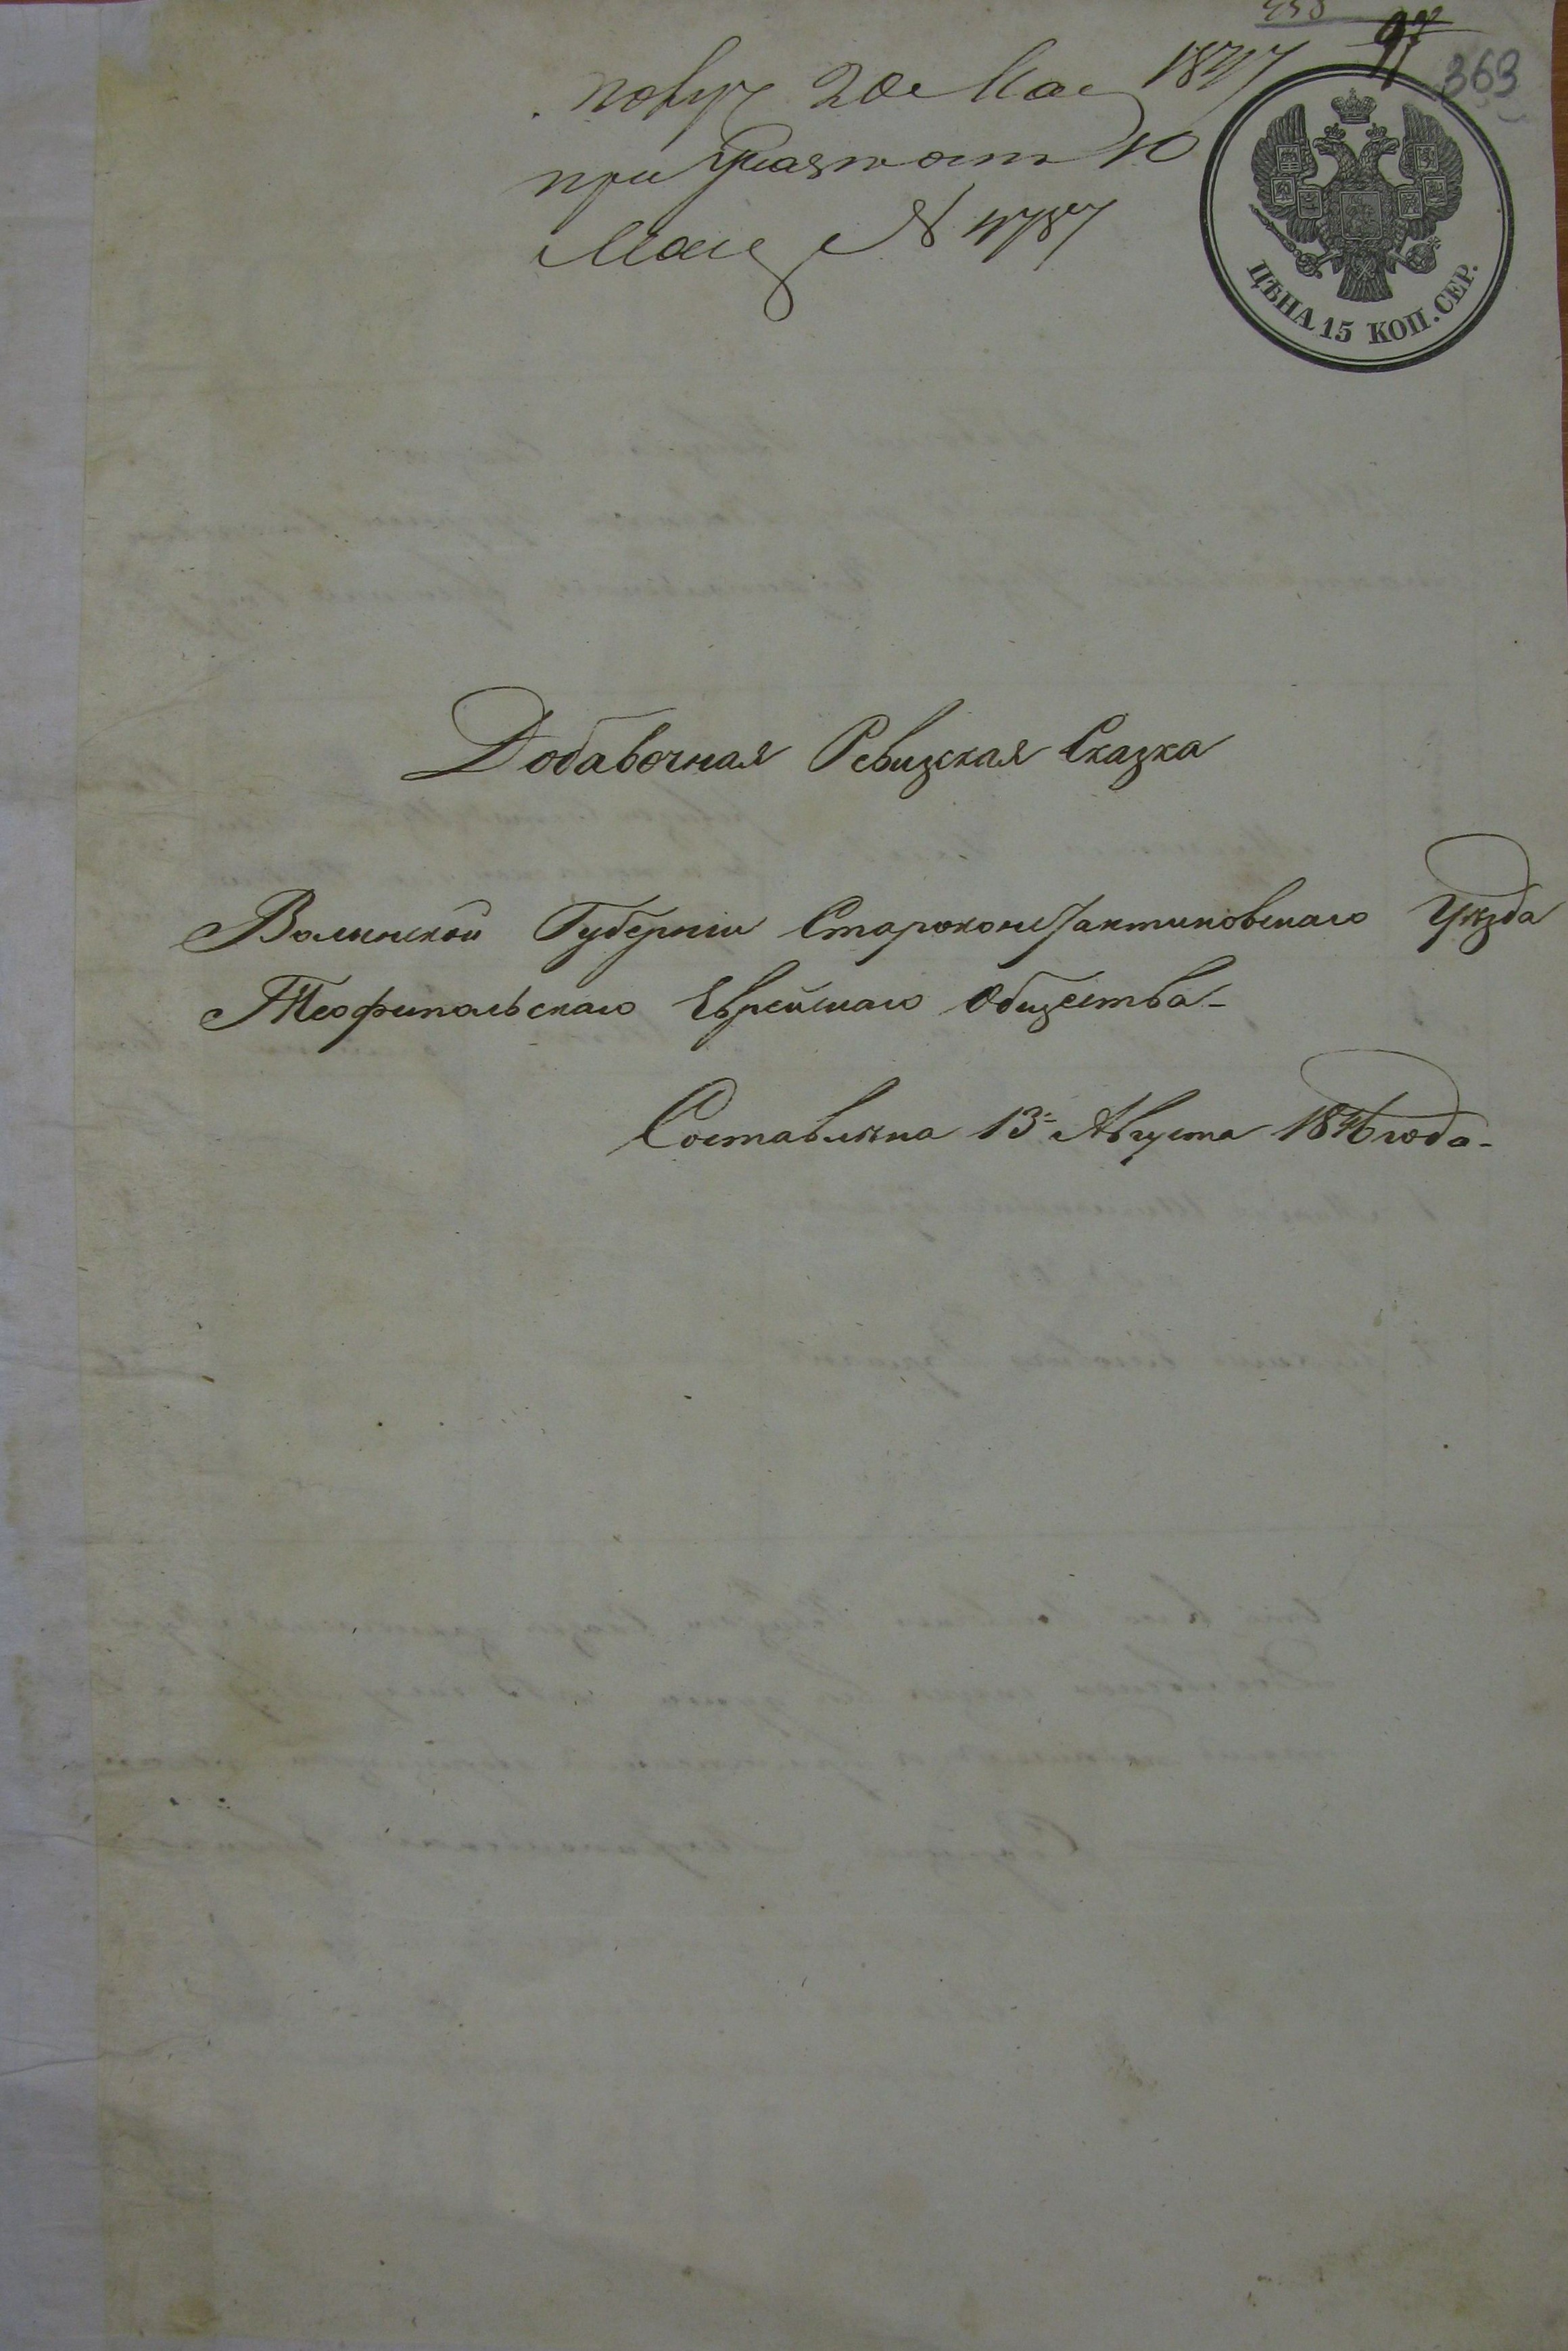 97
363
получ 20 Мая 1847
при Указе от 10
Мая № 4787
ЦѢНА 15 КОП. СЕР.
Добавочная Ревизская Сказка
Волинской Губернии Староконстантиновскаго Уѣзда
Теофипольскаго Еврейскаго Общества
Составлена 13 Августа 1846 года